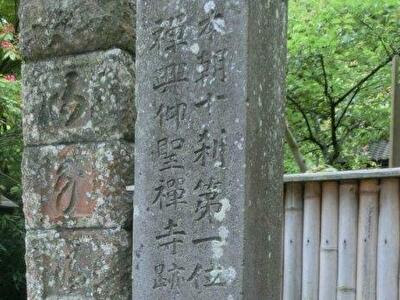 本朝十刹第一位
禅興仰聖禪寺跡